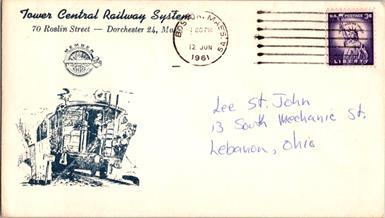 Tower Central Railway System
70 Roslin Street — Dorchester 24, Ma
MEMBER
BOSTON, MASS.
12 JUN
1961
U.S. POSTAGE 3¢
LIBERTY
Lee St. John
13 South Mechanic St.
Lebanon, Ohio